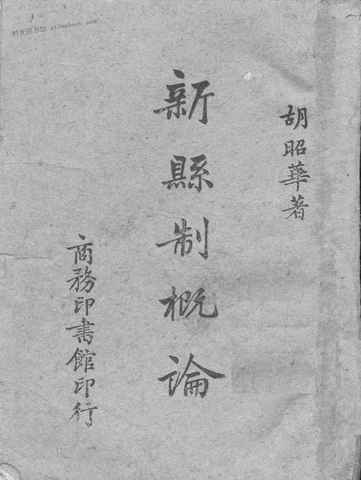 胡昭華著
新縣制概論
商務印書館印行